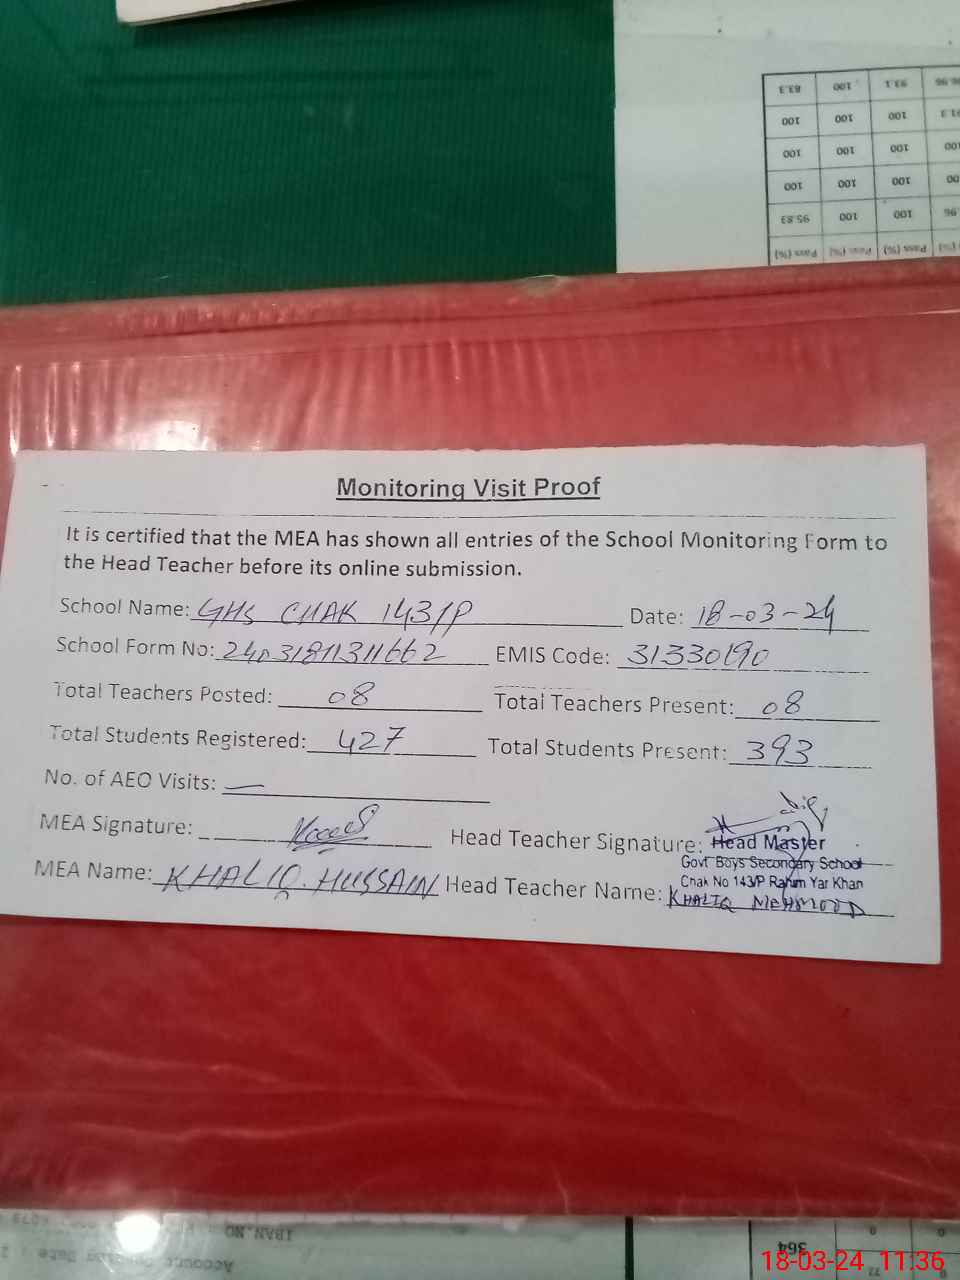 83.3 100 93.1
100 100 100
100 100 100
100 100 100
95.83 100 100
Pass (%) Pass (%) Pass (%)
Monitoring Visit Proof
It is certified that the MEA has shown all entries of the School Monitoring Form to
the Head Teacher before its online submission.
School Name: GHS CHAK 143/P Date: 18-03-24
School Form No: EMIS Code: 31330190
Total Teachers Posted: 08 Total Teachers Present: 08
Total Students Registered: 427 Total Students Present: 393
No. of AEO Visits: —
MEA Signature: Head Teacher Signature: Head Master
Govt Boys Secondary School
Chak No 143/P Rahim Yar Khan
MEA Name: KHALIQ. HUSSAIN Head Teacher Name: KHALIQ MEHMOOD
IBAN.NO
Account
364
18-03-24 11:36